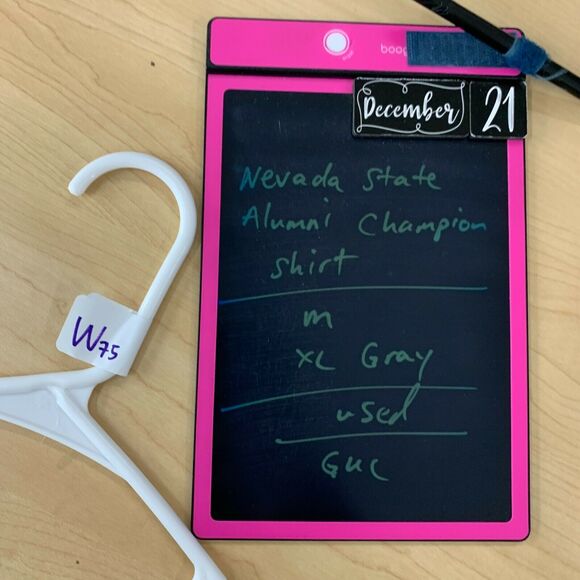 December 21
Nevada State
Alumni Champion
Shirt
m
XL Gray
used
GUC
W75